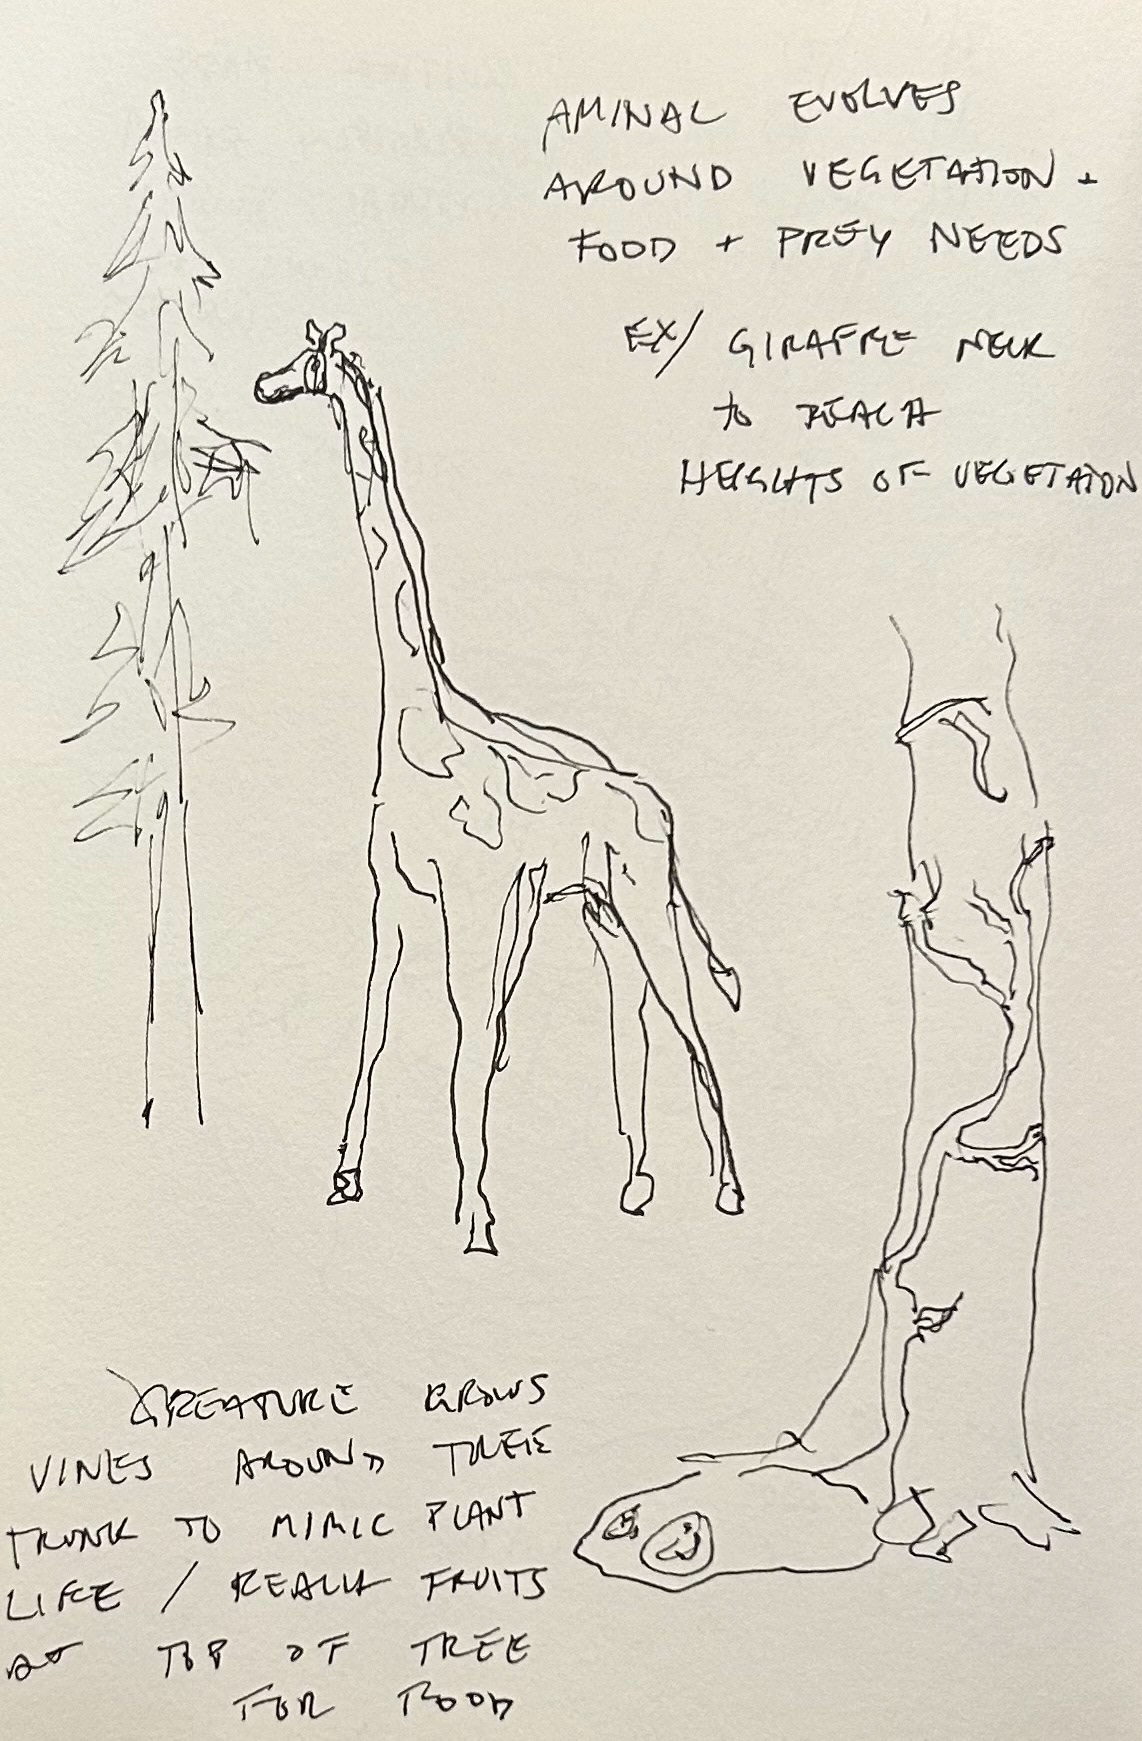 AMINAL EVOLVES
AROUND VEGETATION +
FOOD + PREY NEEDS
EX/ GIRAFFE NECK
to REACH
HEIGHTS OF VEGETATION
CREATURE GROWS
VINES AROUND TREE
TRUNK TO MIMIC PLANT
LIFE / REACH FRUITS
AT TOP OF TREE
FOR FOOD